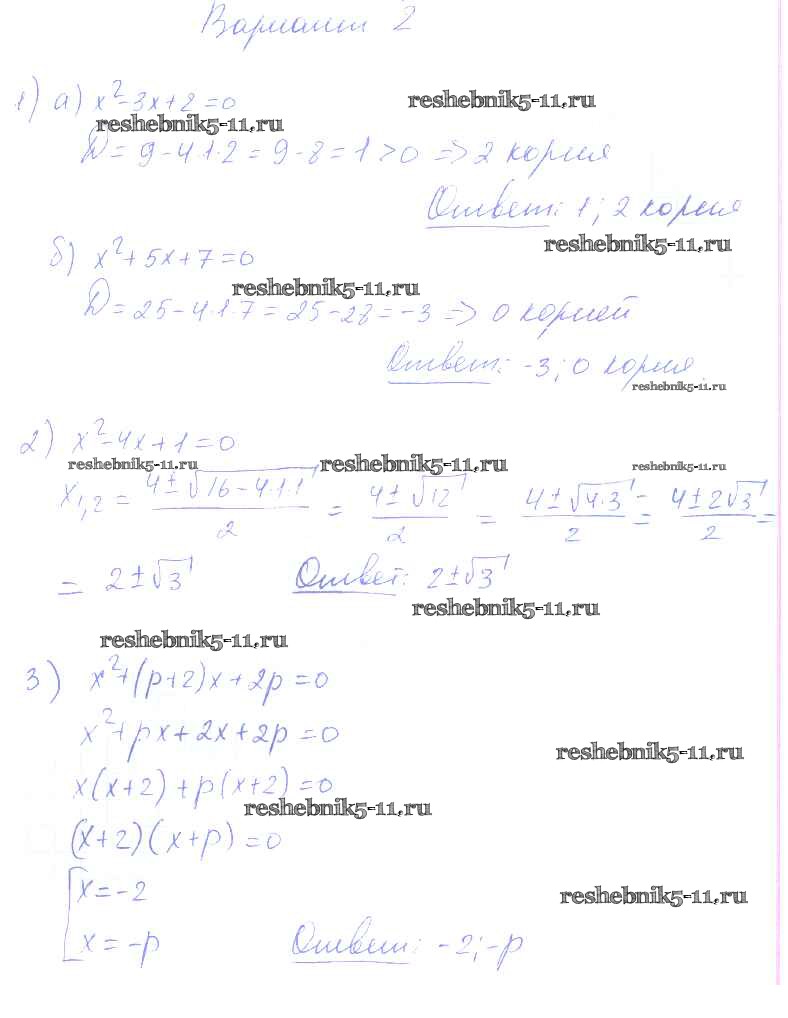 Вариант 2
1) а) x²-3x+2=0
reshebnik5-11.ru
reshebnik5-11.ru
D = 9-4·1·2 = 9-8=1>0 => 2 корня
Ответ: 1; 2 корня
reshebnik5-11.ru
б) x²+5x+7=0
reshebnik5-11.ru
D = 25-4·1·7 = 25-28=-3 => 0 корней
Ответ: -3; 0 корня
reshebnik5-11.ru
2) x²-4x+1=0
reshebnik5-11.ru reshebnik5-11.ru reshebnik5-11.ru
x₁,₂ = (4±√(16-4·1·1))/2 = (4±√12)/2 = (4±√(4·3))/2 = (4±2√3)/2 =
= 2±√3 Ответ: 2±√3
reshebnik5-11.ru
reshebnik5-11.ru
3) x²+(p+2)x+2p=0
x²+px+2x+2p=0
reshebnik5-11.ru
x(x+2)+p(x+2)=0
reshebnik5-11.ru
(x+2)(x+p)=0
x=-2
reshebnik5-11.ru
x=-p Ответ: -2; -p